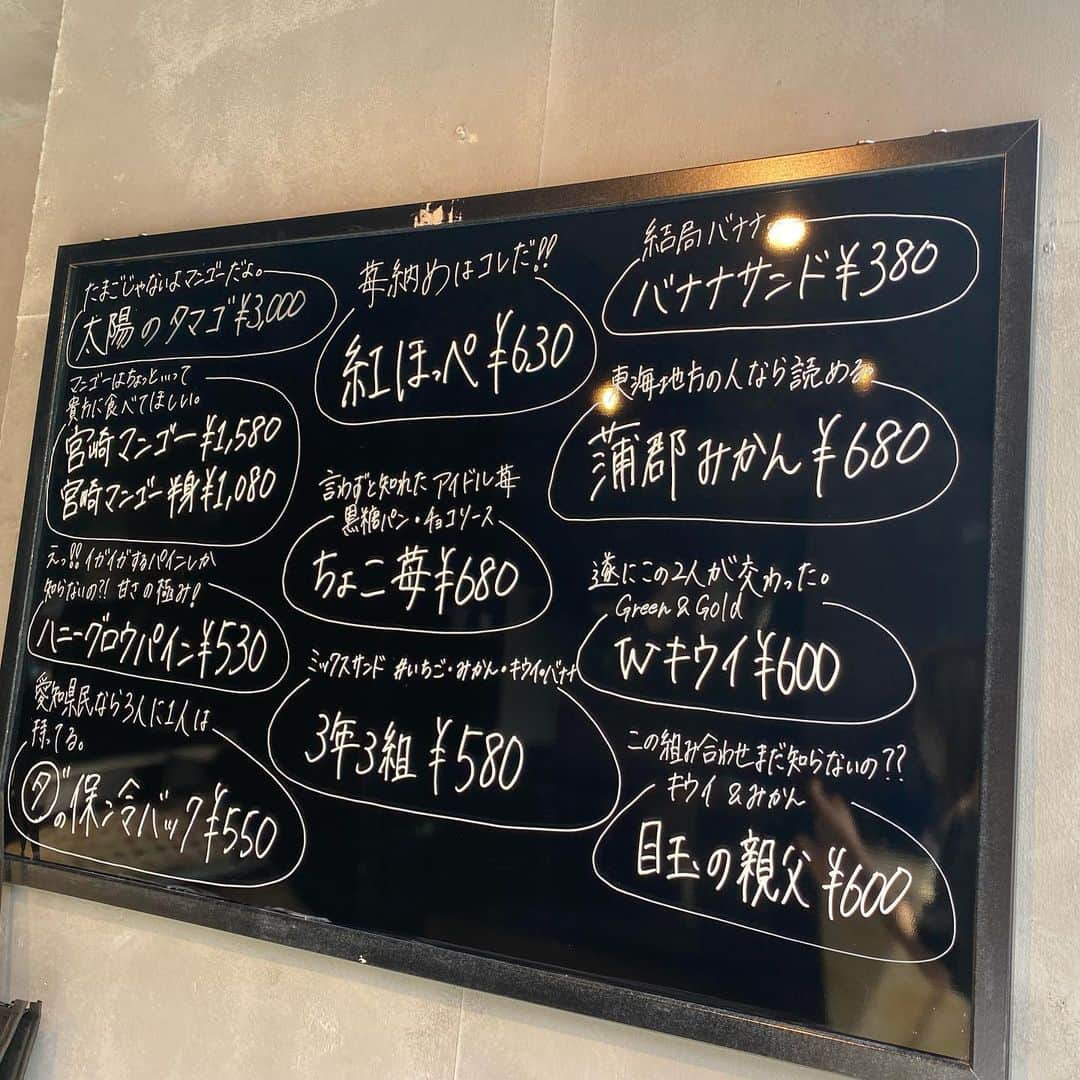 たまごじゃないよマンゴーだよ。
太陽のタマゴ ¥3,000
マンゴーはちょっと…って
貴方に食べてほしい。
宮崎マンゴー ¥1,580
宮崎マンゴー半身 ¥1,080
えっ!! イガイガするパインしか
知らないの?! 甘さの極み!
ハニーグロウパイン ¥530
愛知県民なら3人に1人は
持ってる。
ダの保冷バック ¥550
苺納めはコレだ!!
紅ほっぺ ¥630
言わずと知れた アイドル苺
黒糖パン・チョコソース
ちょこ苺 ¥680
ミックスサンド #いちご・みかん・キウイ・バナナ
3年3組 ¥580
結局バナナ
バナナサンド ¥380
東海地方の人なら読める
蒲郡みかん ¥680
遂にこの2人が交わった。
Green & Gold
Wキウイ ¥600
この組み合わせまだ知らないの??
キウイ &みかん
目玉の親父 ¥600